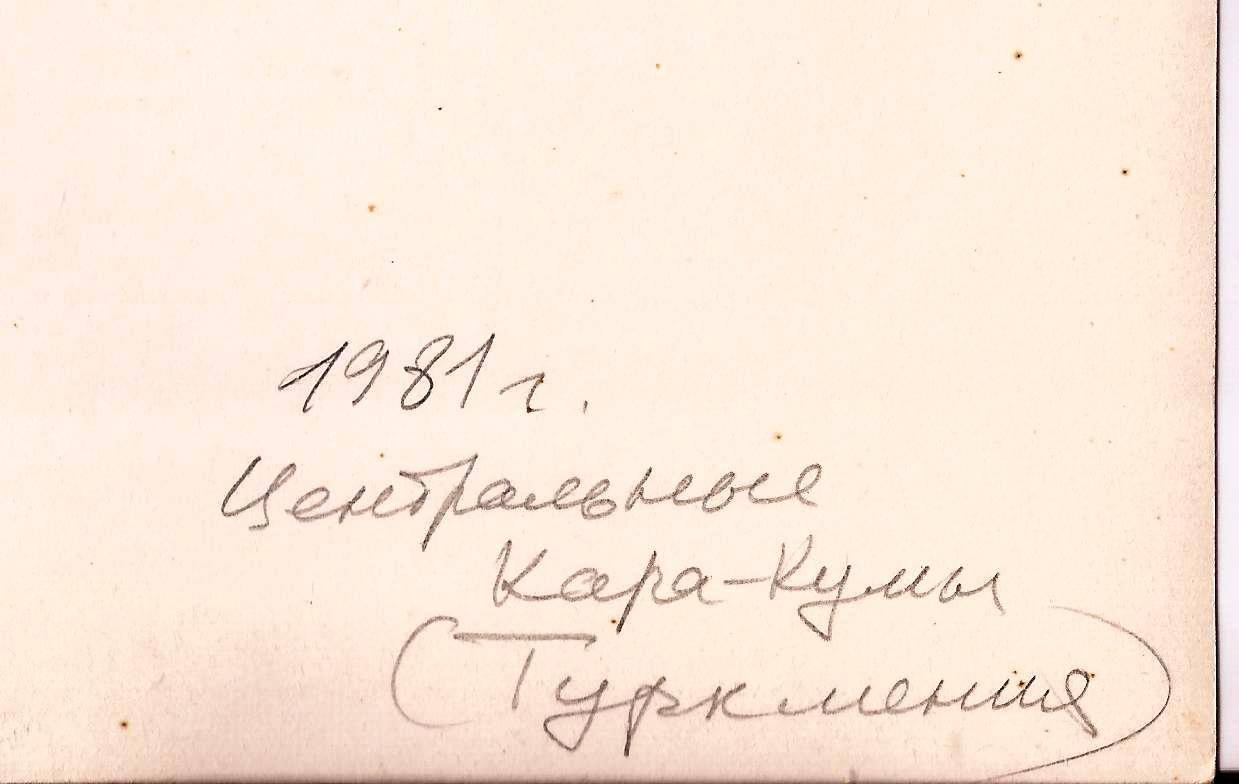 1981 г.
Центральные
Кара-Кумы
(Туркмения)